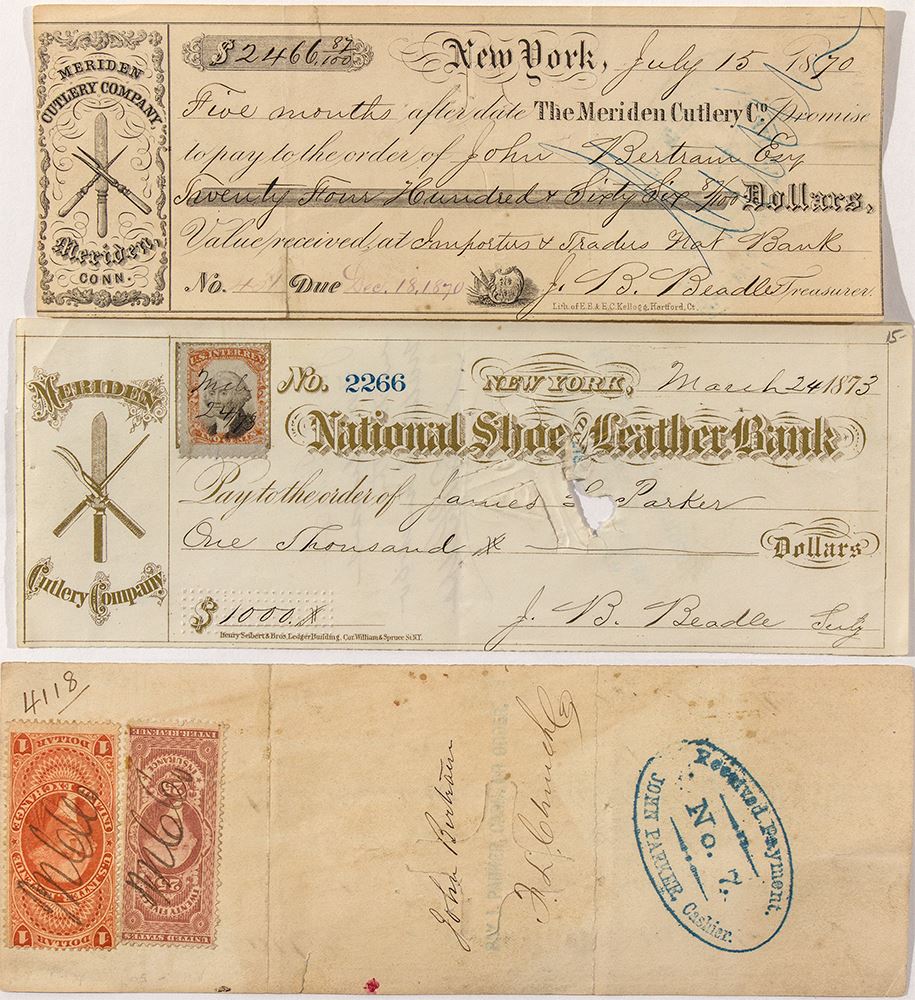 MERIDEN
CUTLERY COMPANY,
Meriden,
CONN.
$2466 87/100
New York, July 15 1870
Five months after date The Meriden Cutlery Co. Promise
to pay to the order of John Bertram Esq
Twenty Four Hundred & Sixty Six 87/100 Dollars,
Value received, at Importers & Traders Nat Bank
No. Due Dec. 18, 1870 J. B. Beadle Treasurer.
Lith. of E.B. & E.C. Kellogg, Hartford, Ct.
15-
MERIDEN
Cutlery Company
U.S. INTER. REV.
No. 2266 NEW YORK, March 24 1873
National Shoe & Leather Bank
Pay to the order of James Parker
One Thousand Dollars
$ 1000.
Henry Seibert & Bros. Ledger Building, Cor. William & Spruce St. N.Y.
J. B. Beadle
4118
1 DOLLAR 1
U.S. INTER. REV.
EXCHANGE
1 DOLLAR 1
INTER. REVENUE
INSURANCE
25
UNITED STATES
John Bertram
Received Payment.
No. 2.
JOHN PARKER, Cashier.